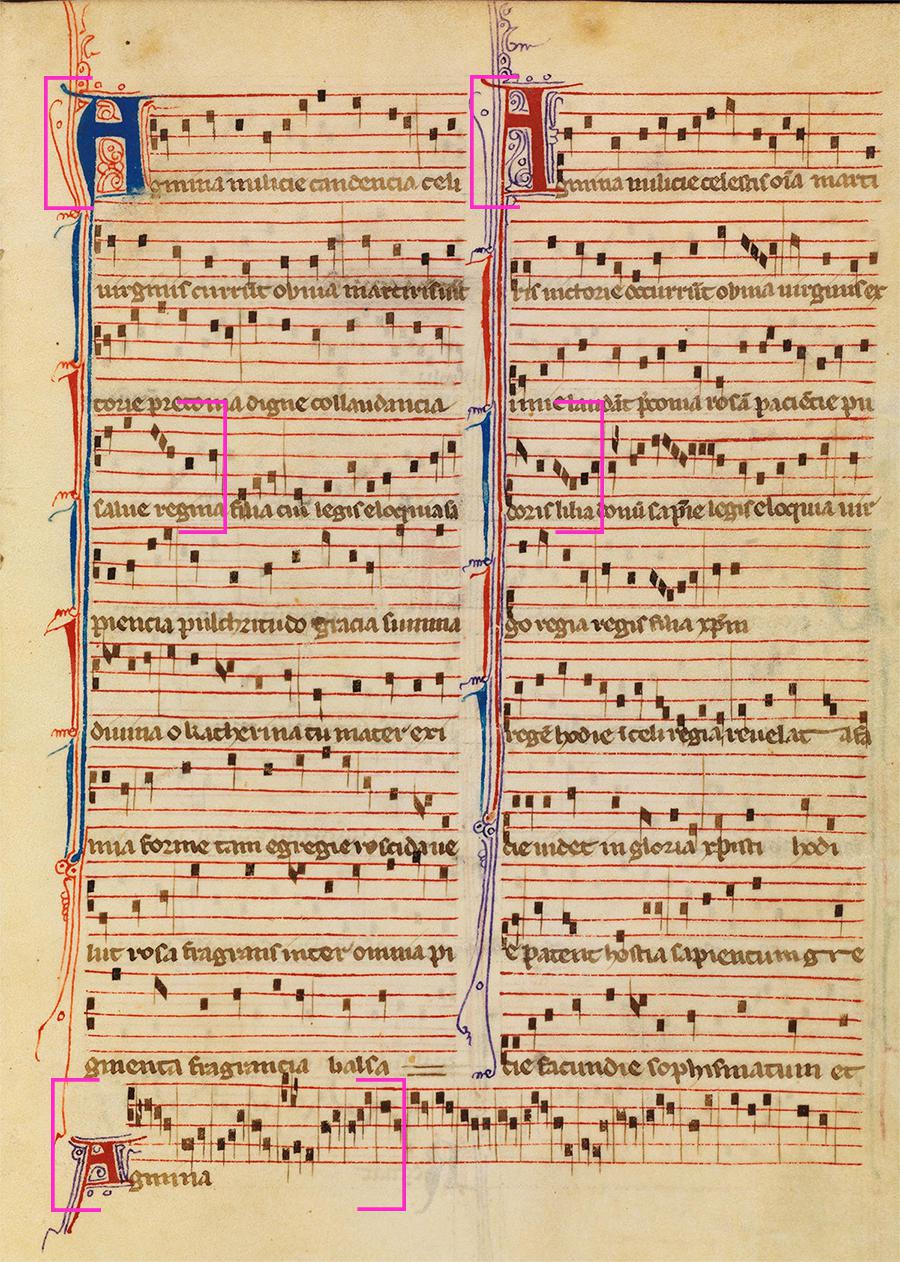 Agmina milicie candencia celi
virginis currūt obvia martiris vict
torie preconia digne collaudancia
salue regina filia cui legis eloquia sa
piencia pulchritudo gracia summa
diuina o katherina tu mater exi
mia forme tam egregie roscida ue
lut rosa fragrans inter omnia pi
gmenta fragrancia balsa
Agmina milicie celestis oīa marti
ris victorie occurrūt obvia uirginis ex
imie laudāt p̄conia rosā paciētie pu
doris lilia donū sapīe legis eloquia uir
go regia regis filia xp̄m
regē hodie ī celi regia reuelat
die uidet in gloria xpisti hodi
e patent hostia sapientum gre
tie facundie sophismatum et
Agmina